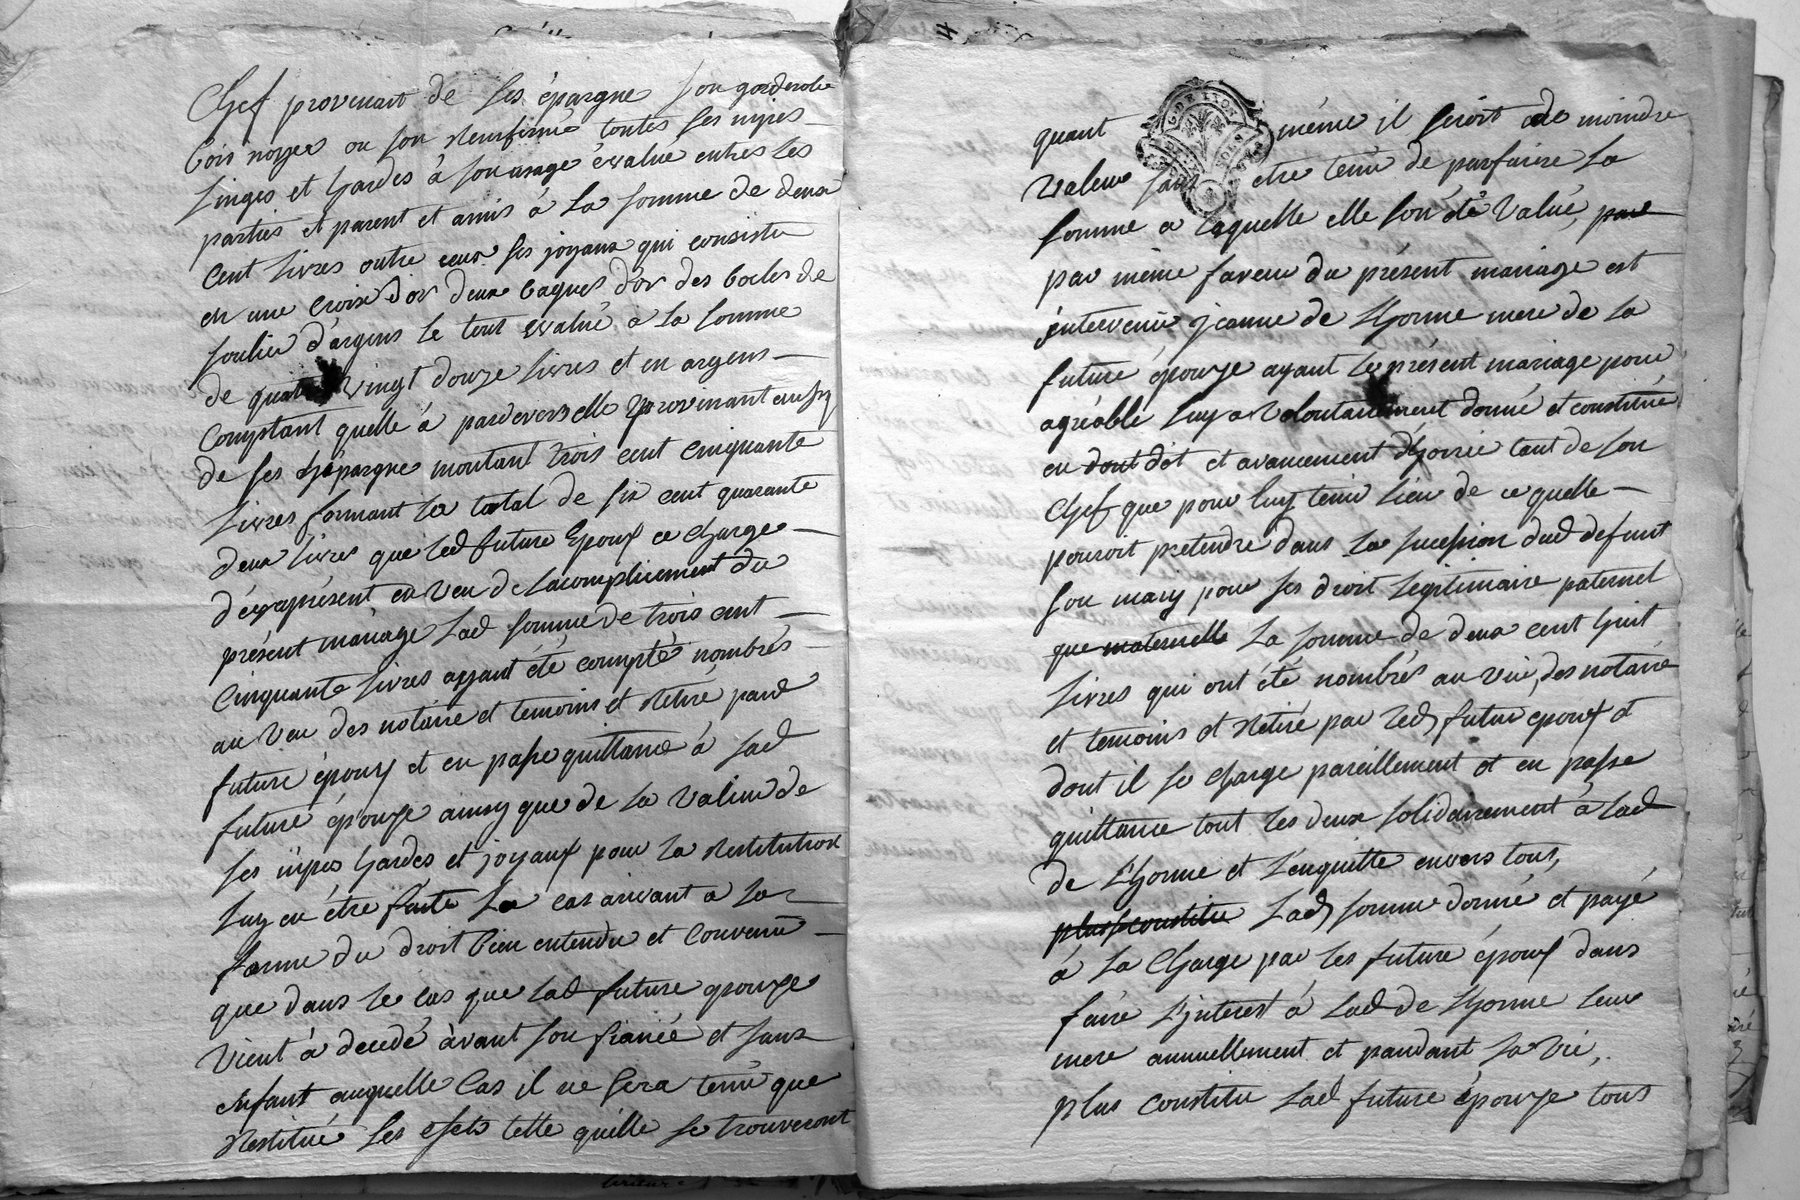 Chef provenant de ses épargne son garderobe
bois noyer ou son renfermé toutes ses nipes
Linges et hardes à son usage évalué entres les
parties et parent et amis à La somme de deux
Cent Livres outre ceux ses joyaux qui consiste
en une croix d'or deux bagues d'or des bocles de
soulier d'argens le tout evalué a la somme
de quatre vingt douze livres et en argens
Comptant quelle à pardevers elle provenant aussy
de ses épargne montant trois cent cinquante
Livres formant le total de six cent quarante
deux livres que led future Epoux ce charge
d'éxaprésent en veu de lacomplicement du
présent mariage Lad somme de trois cent
Cinquante livres ayant été compté nombrés
au veu des notaire et temoins et Retiré par le
future époux et en passe quittance à Lad
future épouze ainsy que de la valeur de
ses nipes hardes et joyaux pour la Restitution
Luy en être faite Le cas arivant a la
forme du droit bien entendu et Convenu
que dans le cas que Lad future epouze
vient à decedé avant son fiancé et sans
enfant auquelle Cas il ne sera tenu que
Restitué Les efets telle quille se trouveront
quant même il seroit de moindre
valeur sans etre tenu de parfaire la
somme a laquelle elle son été valué, par
par même faveur du présent mariage est
intervenue jeanne de Lhorme mere de la
future épouze ayant le présent mariage pour
agréable luy a volontairement donné et constitué
en dont dot et avancement d'horrie tant de son
Chef que pour luy tenir lieu de ce quelle
pouroit pretendre dans la sucession dud defunt
son mary pour ses droit legitimaire paternel
que maternelle La somme de deux cent huit
Livres qui ont été nombrés au veu, des notaire
et temoins et Retiré par led, future epoux et
dont il se charge pareillement et en passe
quittance tout les deux solidairement à Lad
de Lhorme et Lenquitte envers tous,
plus constitue Lad, somme donné et payé
à La Charge par les future époux dans
faire L'jnterest à Lad de Lhorme leur
mere annuellement et pandant sa vie,
plus constitue Lad future épouze tous